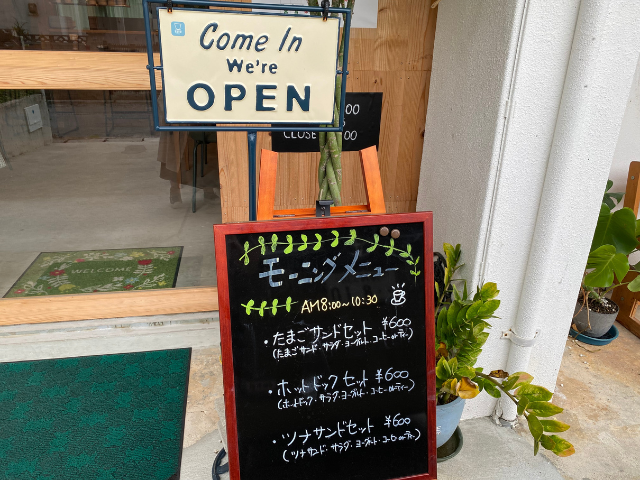 Come In
We're
OPEN
CLOSE
WELCOME
モーニングメニュー
AM8:00〜10:30
・たまごサンドセット ¥600
(たまごサンド・サラダ・ヨーグルト・コーヒーorティー)
・ホットドックセット ¥600
(ホットドック・サラダ・ヨーグルト・コーヒーorティー)
・ツナサンドセット ¥600
(ツナサンド・サラダ・ヨーグルト・コーヒーorティー)